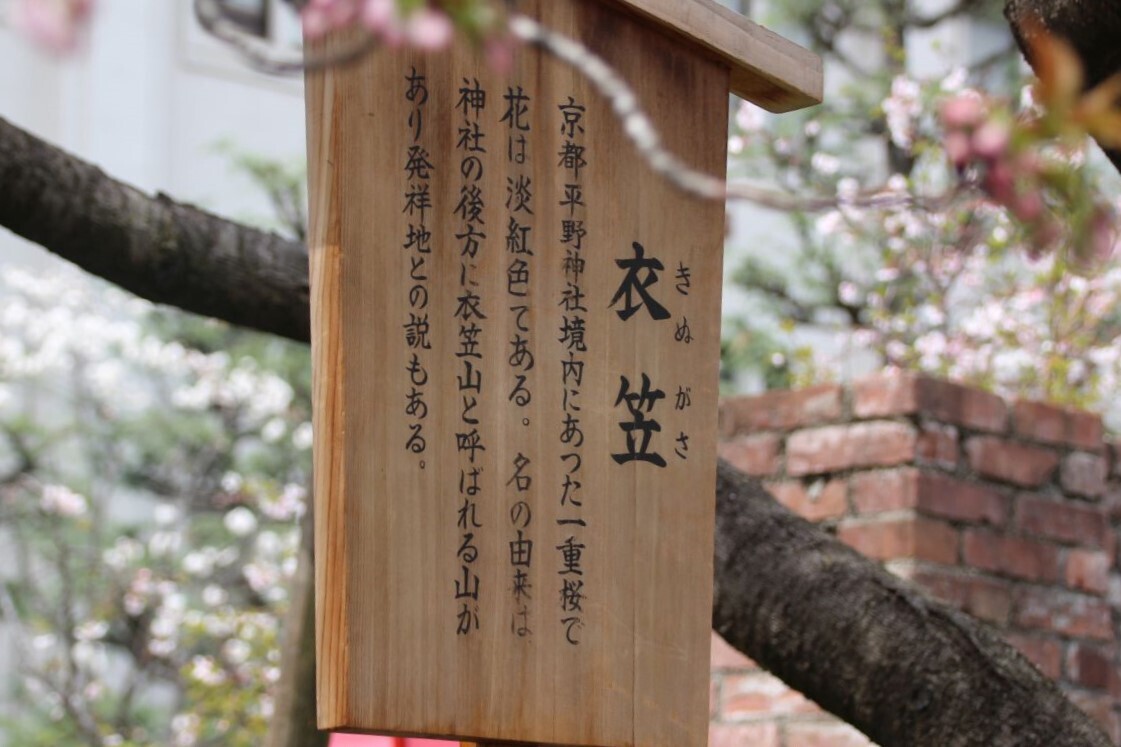 衣笠
きぬがさ
京都平野神社境内にあつた一重桜で
花は淡紅色てある。名の由来は
神社の後方に衣笠山と呼ばれる山が
あり発祥地との説もある。